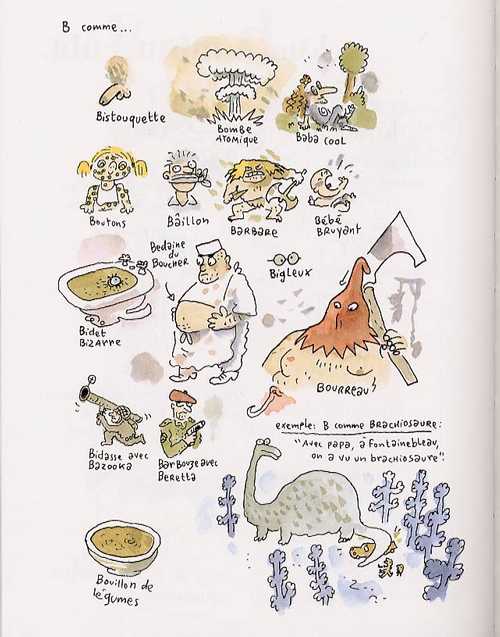 B comme...
Bistouquette
Bombe
Atomique
Baba cool
Boutons
Bâillon
BARBARE
Bébé
BRuyant
Bedaine
du
Boucher
BigLeux
Bidet
Bizarre
BOURREAU
Bidasse avec
Bazooka
BarBouze avec
Beretta
exemple: B comme BRAChiosauRe:
"Avec papa, à Fontainebleau,
on a vu un brachiosaure".
Bouillon de
légumes